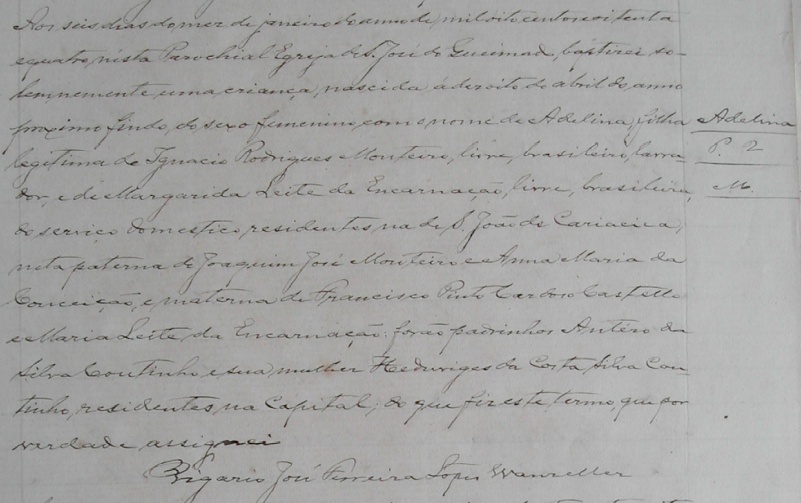 Aos seis dias do mez de janeiro do anno de mil oito centos e oitenta
e quatro, nesta Parochial Egreja de S. José do Queimado, baptizei so-
lemnemente uma criança, nascida á dezoito de abril do anno
proximo findo, do sexo femenino, com o nome de Adelina, filha
legitima de Ignacio Rodrigues Monteiro, livre, brasileiro, lavra
dor, e de Margarida Leite da Encarnação, livre, brasileira,
do serviço domestico, residentes na de S. João de Cariacica,
neta paterna de Joaquim José Monteiro e Anna Maria da
Conceição, e materna de Francisco Pinto Cardoso Castello
e Maria Leite da Encarnação: forão padrinhos Antéro da
Silva Coutinho e sua mulher Heduviges da Costa Silva Cou
tinho, residentes na Capital; do que fiz este termo, que por
verdade assignei
Vigario José Ferreira Lopes Wanzeller
Adelina
P. 2
M.